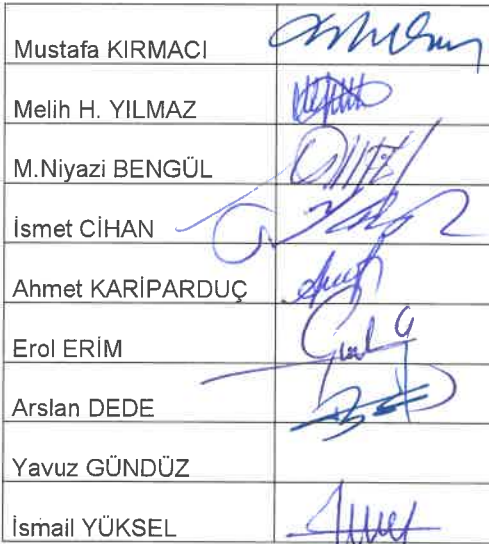 Mustafa KIRMACI
Melih H. YILMAZ
M.Niyazi BENGÜL
İsmet CİHAN
Ahmet KARİPARDUÇ
Erol ERİM
Arslan DEDE
Yavuz GÜNDÜZ
İsmail YÜKSEL